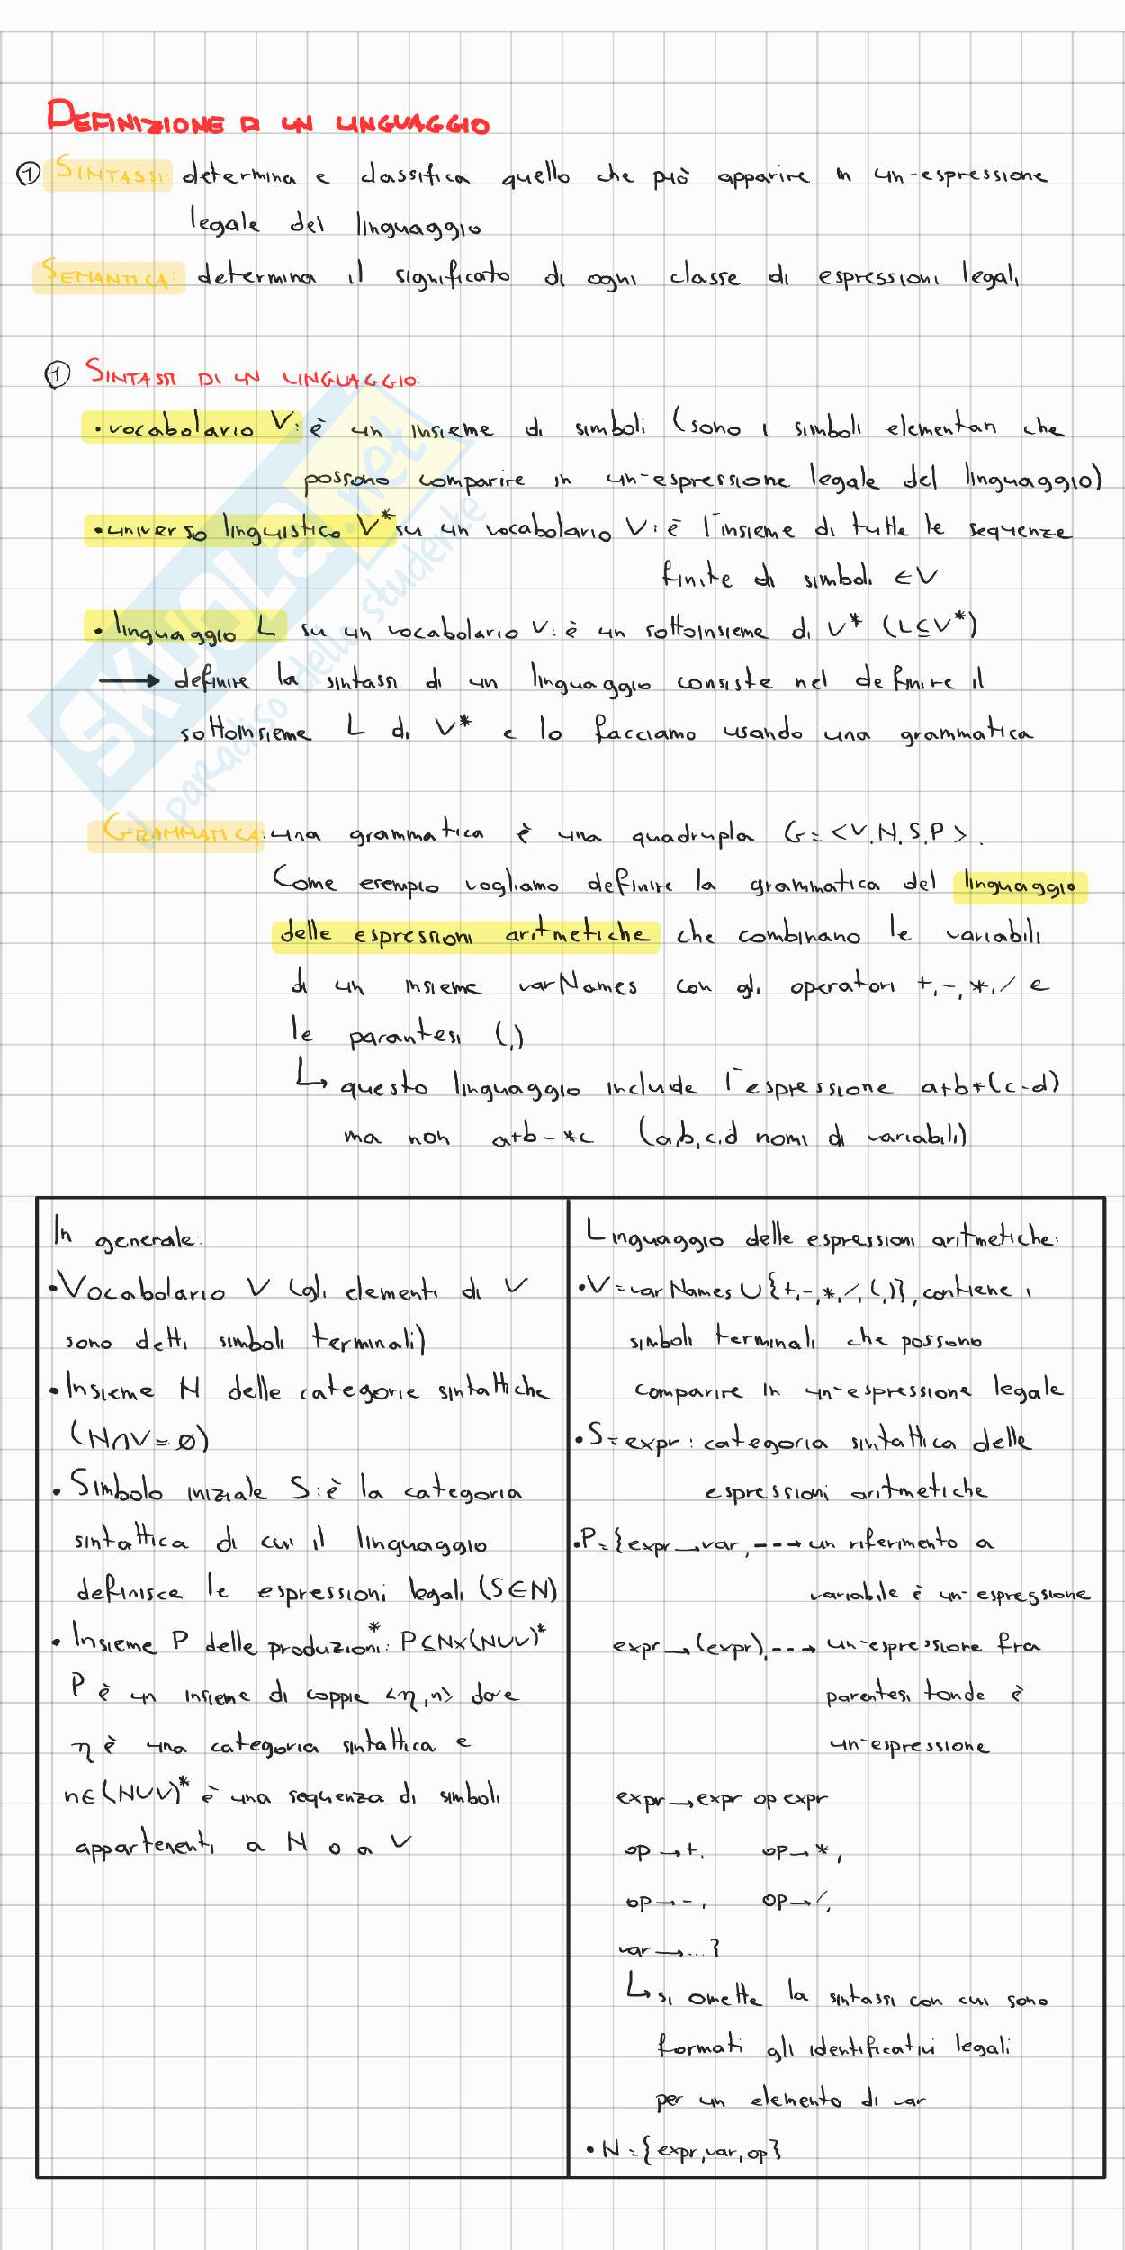 DEFINIZIONE DI UN LINGUAGGIO
① SINTASSI: determina e classifica quello che può apparire in un'espressione
legale del linguaggio
SEMANTICA: determina il significato di ogni classe di espressioni legali
① SINTASSI DI UN LINGUAGGIO
• vocabolario V: è un insieme di simboli (sono i simboli elementari che
possono comparire in un'espressione legale del linguaggio)
• universo linguistico V* su un vocabolario V: è l'insieme di tutte le sequenze
finite di simboli ∈V
• linguaggio L su un vocabolario V: è un sottoinsieme di V* (L⊆V*)
→ definire la sintassi di un linguaggio consiste nel definire il
sottoinsieme L di V* e lo facciamo usando una grammatica
GRAMMATICA: una grammatica è una quadrupla G=<V,N,S,P>.
Come esempio vogliamo definire la grammatica del linguaggio
delle espressioni aritmetiche che combinano le variabili
di un insieme varNames con gli operatori +,-,*,/ e
le parantesi (,)
↳ questo linguaggio include l'espressione a+b+(c-d)
ma non a+b-*c (a,b,c,d nomi di variabili)
In generale:
• Vocabolario V (gli elementi di V
sono detti simboli terminali)
• Insieme N delle categorie sintattiche
(N∩V=∅)
• Simbolo iniziale S: è la categoria
sintattica di cui il linguaggio
definisce le espressioni legali (S∈N)
• Insieme P delle produzioni*: P⊆N×(N∪V)*
P è un insieme di coppie <η,n> dove
η è una categoria sintattica e
n∈(N∪V)* è una sequenza di simboli
appartenenti a N o a V
Linguaggio delle espressioni aritmetiche:
• V=varNames ∪{+,-,*,/,(,)}, contiene i
simboli terminali che possono
comparire in un'espressione legale
• S=expr: categoria sintattica delle
espressioni aritmetiche
• P={expr→var, ---→ un riferimento a
variabile è un'espressione
expr→(expr), ---→ un'espressione fra
parentesi tonde è
un'espressione
expr→expr op expr
op→+, op→*,
op→-, op→/,
var→...}
↳ si omette la sintassi con cui sono
formati gli identificativi legali
per un elemento di var
• N={expr,var,op}
SKUOLA.net
il paradiso dello studente